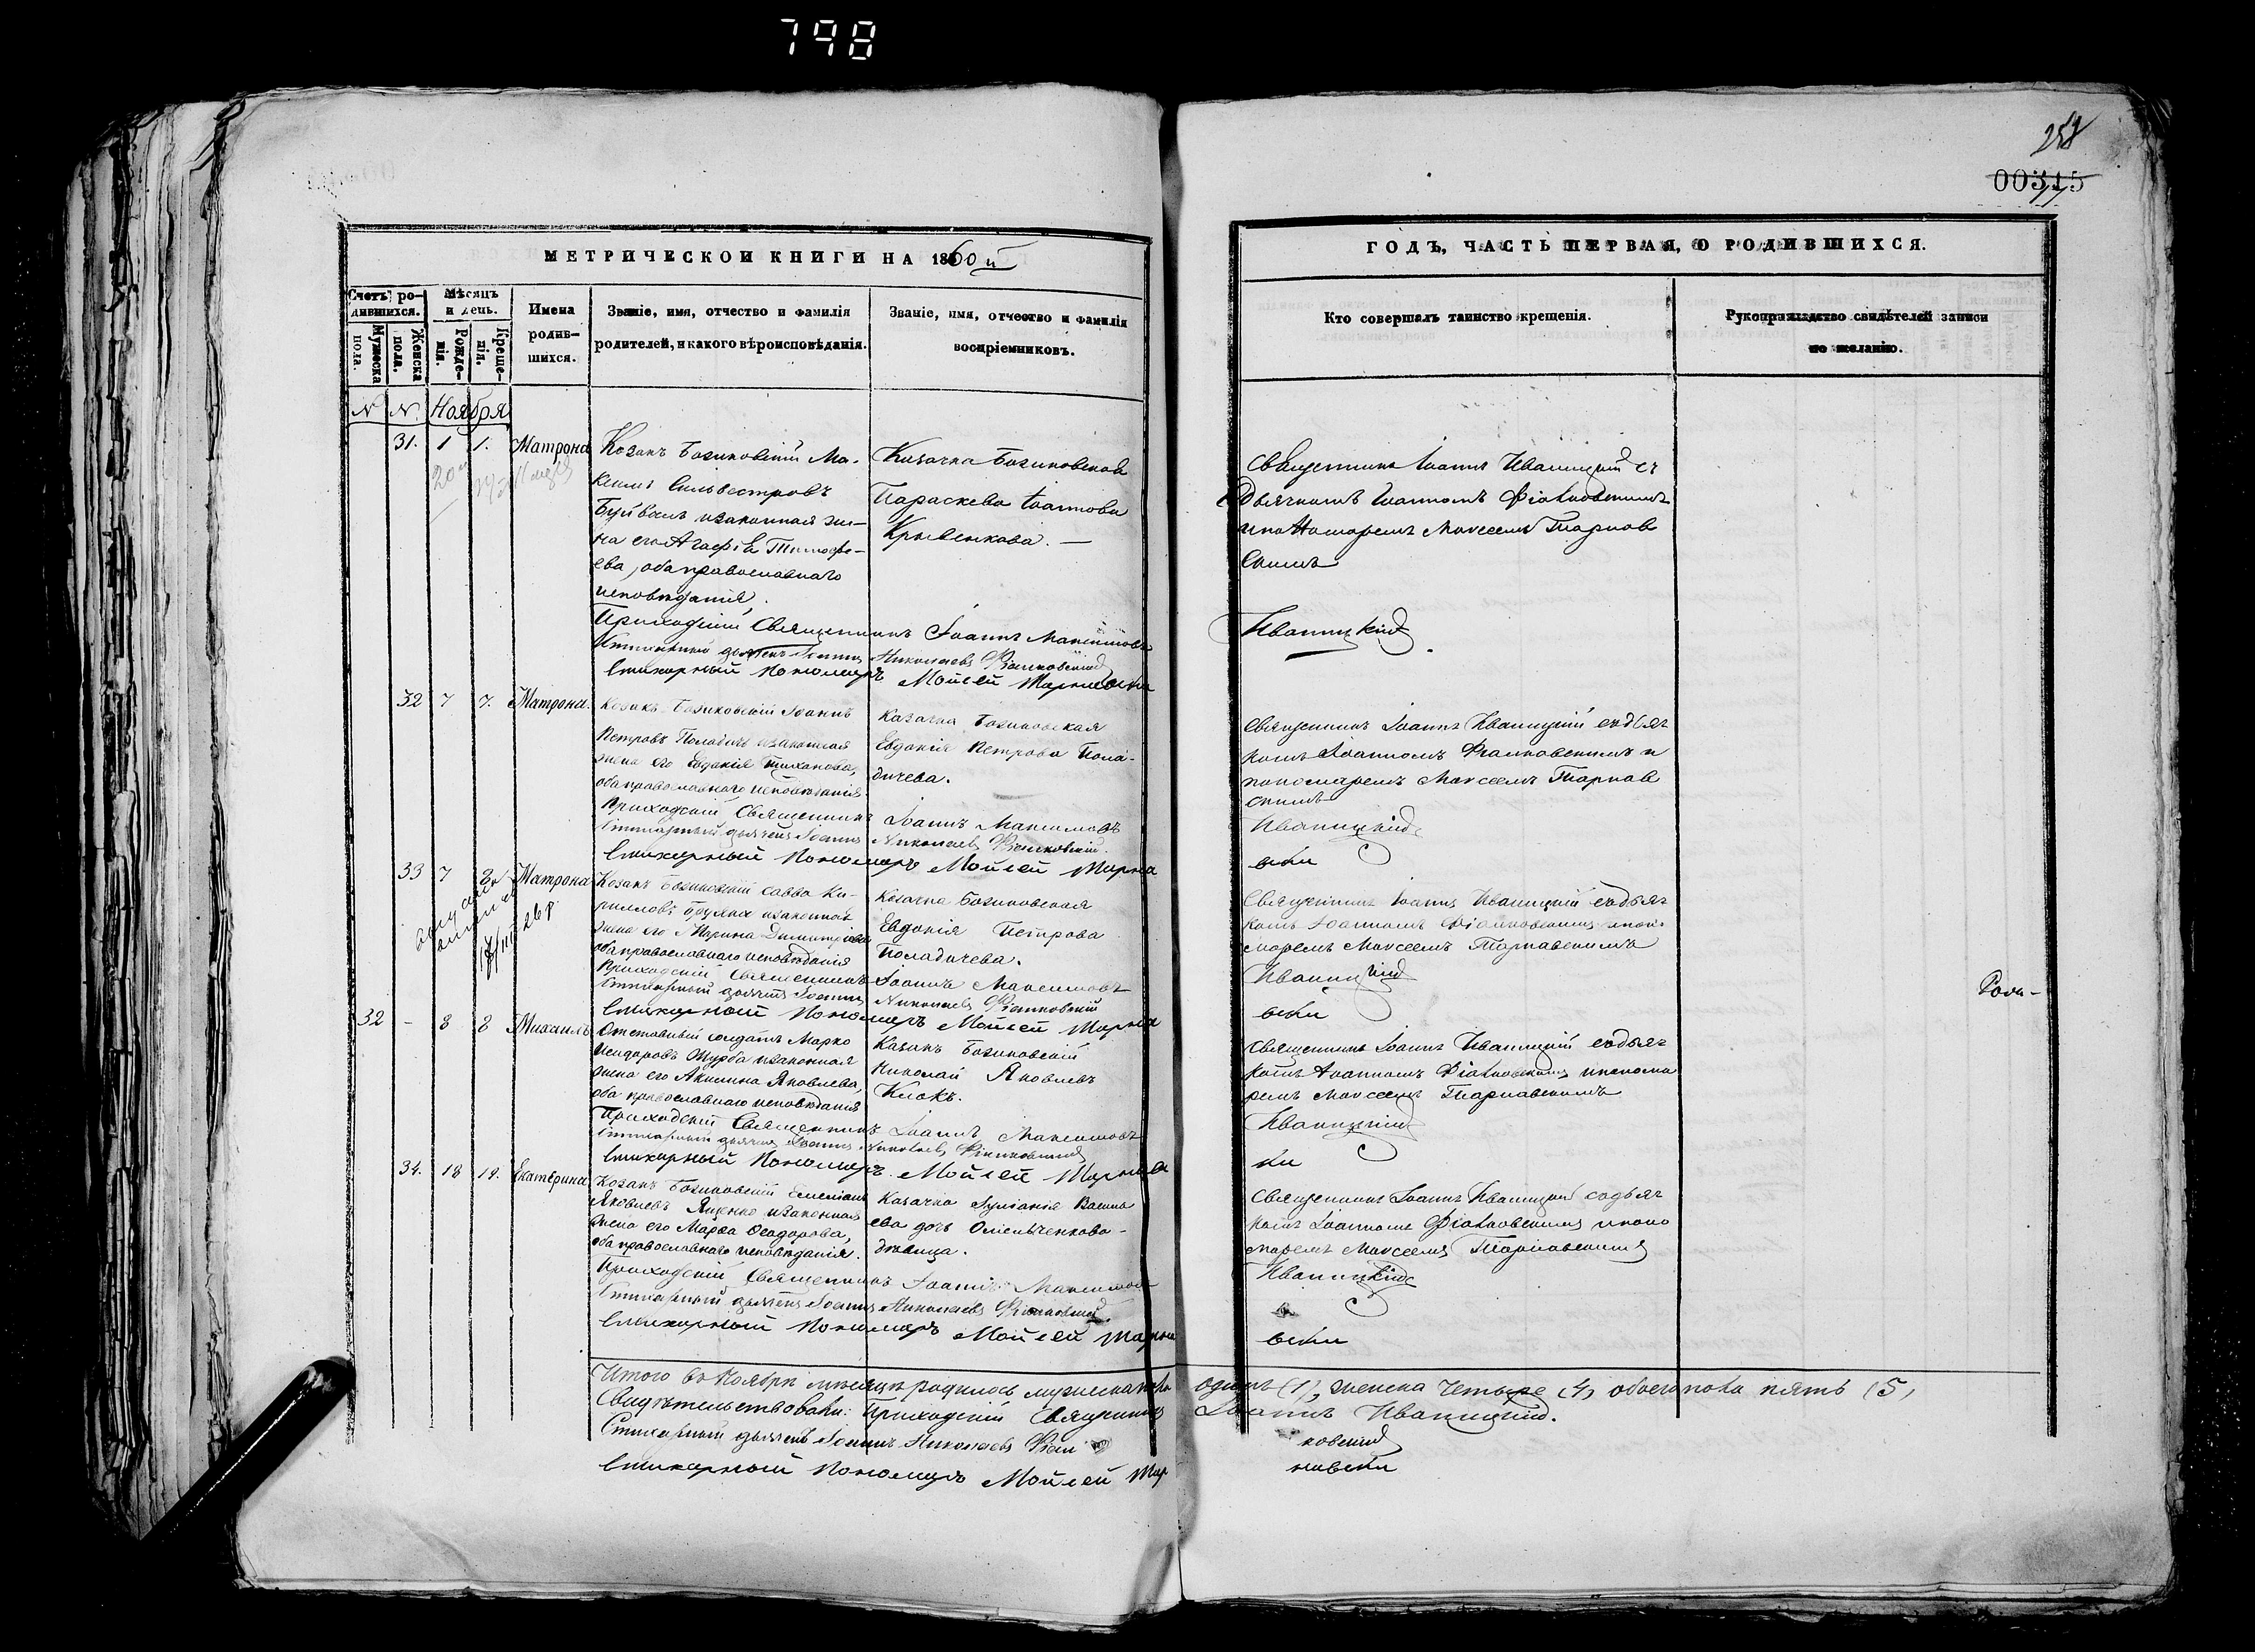 798
258
00315
МЕТРИЧЕСКОЙ КНИГИ НА 1860й
ГОДЪ, ЧАСТЬ ПЕРВАЯ, О РОДИВШИХСЯ.
Счетъ родившихся.
Мужеска пола.
Женска пола.
Мѣсяцъ и день.
Рожденія.
Крещенія.
Имена родившихся.
Званіе, имя, отчество и фамилія
родителей, и какого вѣроисповѣданія.
Званіе, имя, отчество и фамилія
воспріемниковъ.
Кто совершалъ таинство крещенія.
Рукоприкладство свидѣтелей записи
по желанію.
N N. Ноября
31. 1 1. Матрона
Козакъ Базиковскій Ма-
ксимъ Сильвестровъ
законная же-
на его Агафія Тимофе-
ева, оба православнаго
исповѣданія.
Казачка Базиковская
Параскева Іоаннова
Кривенкова. —
Священникъ Іоаннъ Иваницкій съ
дьячкомъ Іоанномъ
и пономаремъ Моѵсеемъ Тарнав
скимъ
Приходскій Священникъ Іоаннъ Максимовъ
Иваницкій
Стихарный дьячекъ Іоаннъ Николаевъ
Стихарный Пономаръ Мойсей Тарнавски
32 7 7. Матрона.
Козакъ Базиковскій Іоаннъ
Петровъ изаконная
жена его Евдокія Тихонова,
оба православнаго исповѣданія
Казачка Базиковская
Евдокія Петрова Пола-
дичева.
Священникъ Іоаннъ Иваницкій съ дьяч
комъ Іоанномъ и
пономаремъ Моѵсеемъ Тарнав
скимъ
Приходскій Священникъ Іоаннъ Максимовъ
Иваницкій
Стихарный дьячекъ Іоаннъ Николаевъ
Стихарный Пономаръ Мойсей Тарна
вски
33 7 8 Матрона
Козакъ Базиковскій Савва Ки-
рилловъ изаконная
жена его Марина Димитріева
оба православнаго исповѣданія
Казачка Базиковская
Евдокія Петрова
Поладичева.
Священникъ Іоаннъ Иваницкій съ дьяч
комъ Іоанномъ и поно-
маремъ Моѵсеемъ Тарнавскимъ
Приходскій Священникъ Іоаннъ Максимовъ
Иваницкій
Стихарный дьячекъ Іоаннъ Николаевъ
Стихарный Пономаръ Мойсей Тарна
вски
32 - 8 8 Михаилъ
Отставный солдатъ Марко
Исидоровъ изаконная
жена его Акилина Яковлева,
оба православнаго исповѣданія
Казакъ Базиковскій
Николай Яковлевъ
Священникъ Іоаннъ Иваницкій съ дьяч
комъ Іоанномъ и понома
ремъ Моѵсеемъ Тарнавскимъ
Приходскій Священникъ Іоаннъ Максимовъ
Иваницкій
Стихарный дьячекъ Іоаннъ Николаевъ
Стихарный Пономаръ Мойсей Тарнавс
ки
34. 18 19. Екатерина
Козакъ Базиковскій Емеліанъ
Яковлевъ Яценко изаконная
жена его Марѳа Ѳеодорова,
оба православнаго исповѣданія.
Казачка Іуліанія Васил
ева дочь Омельченкова-
дѣвица.
Священникъ Іоаннъ Иваницкій съ дьяч
комъ Іоанномъ и поно
маремъ Моѵсеемъ Тарнавскимъ
Приходскій Священникъ Іоаннъ Максимов
Иваницкій
Стихарный дьячекъ Іоаннъ Николаевъ
Стихарный Пономаръ Мойсей Тарна
вски
Роди-
Итого въ Ноябрѣ мѣсяцѣ родилось мужеска пола одинъ (1), женска четыре (4) обоего пола пять (5)
Свидѣтельствовали: Приходскій Священникъ Іоаннъ Иваницкій.
Стихарный дьячекъ Іоаннъ Николаевъ
ковскій
Стихарный Пономаръ Мойсей Тар
навски